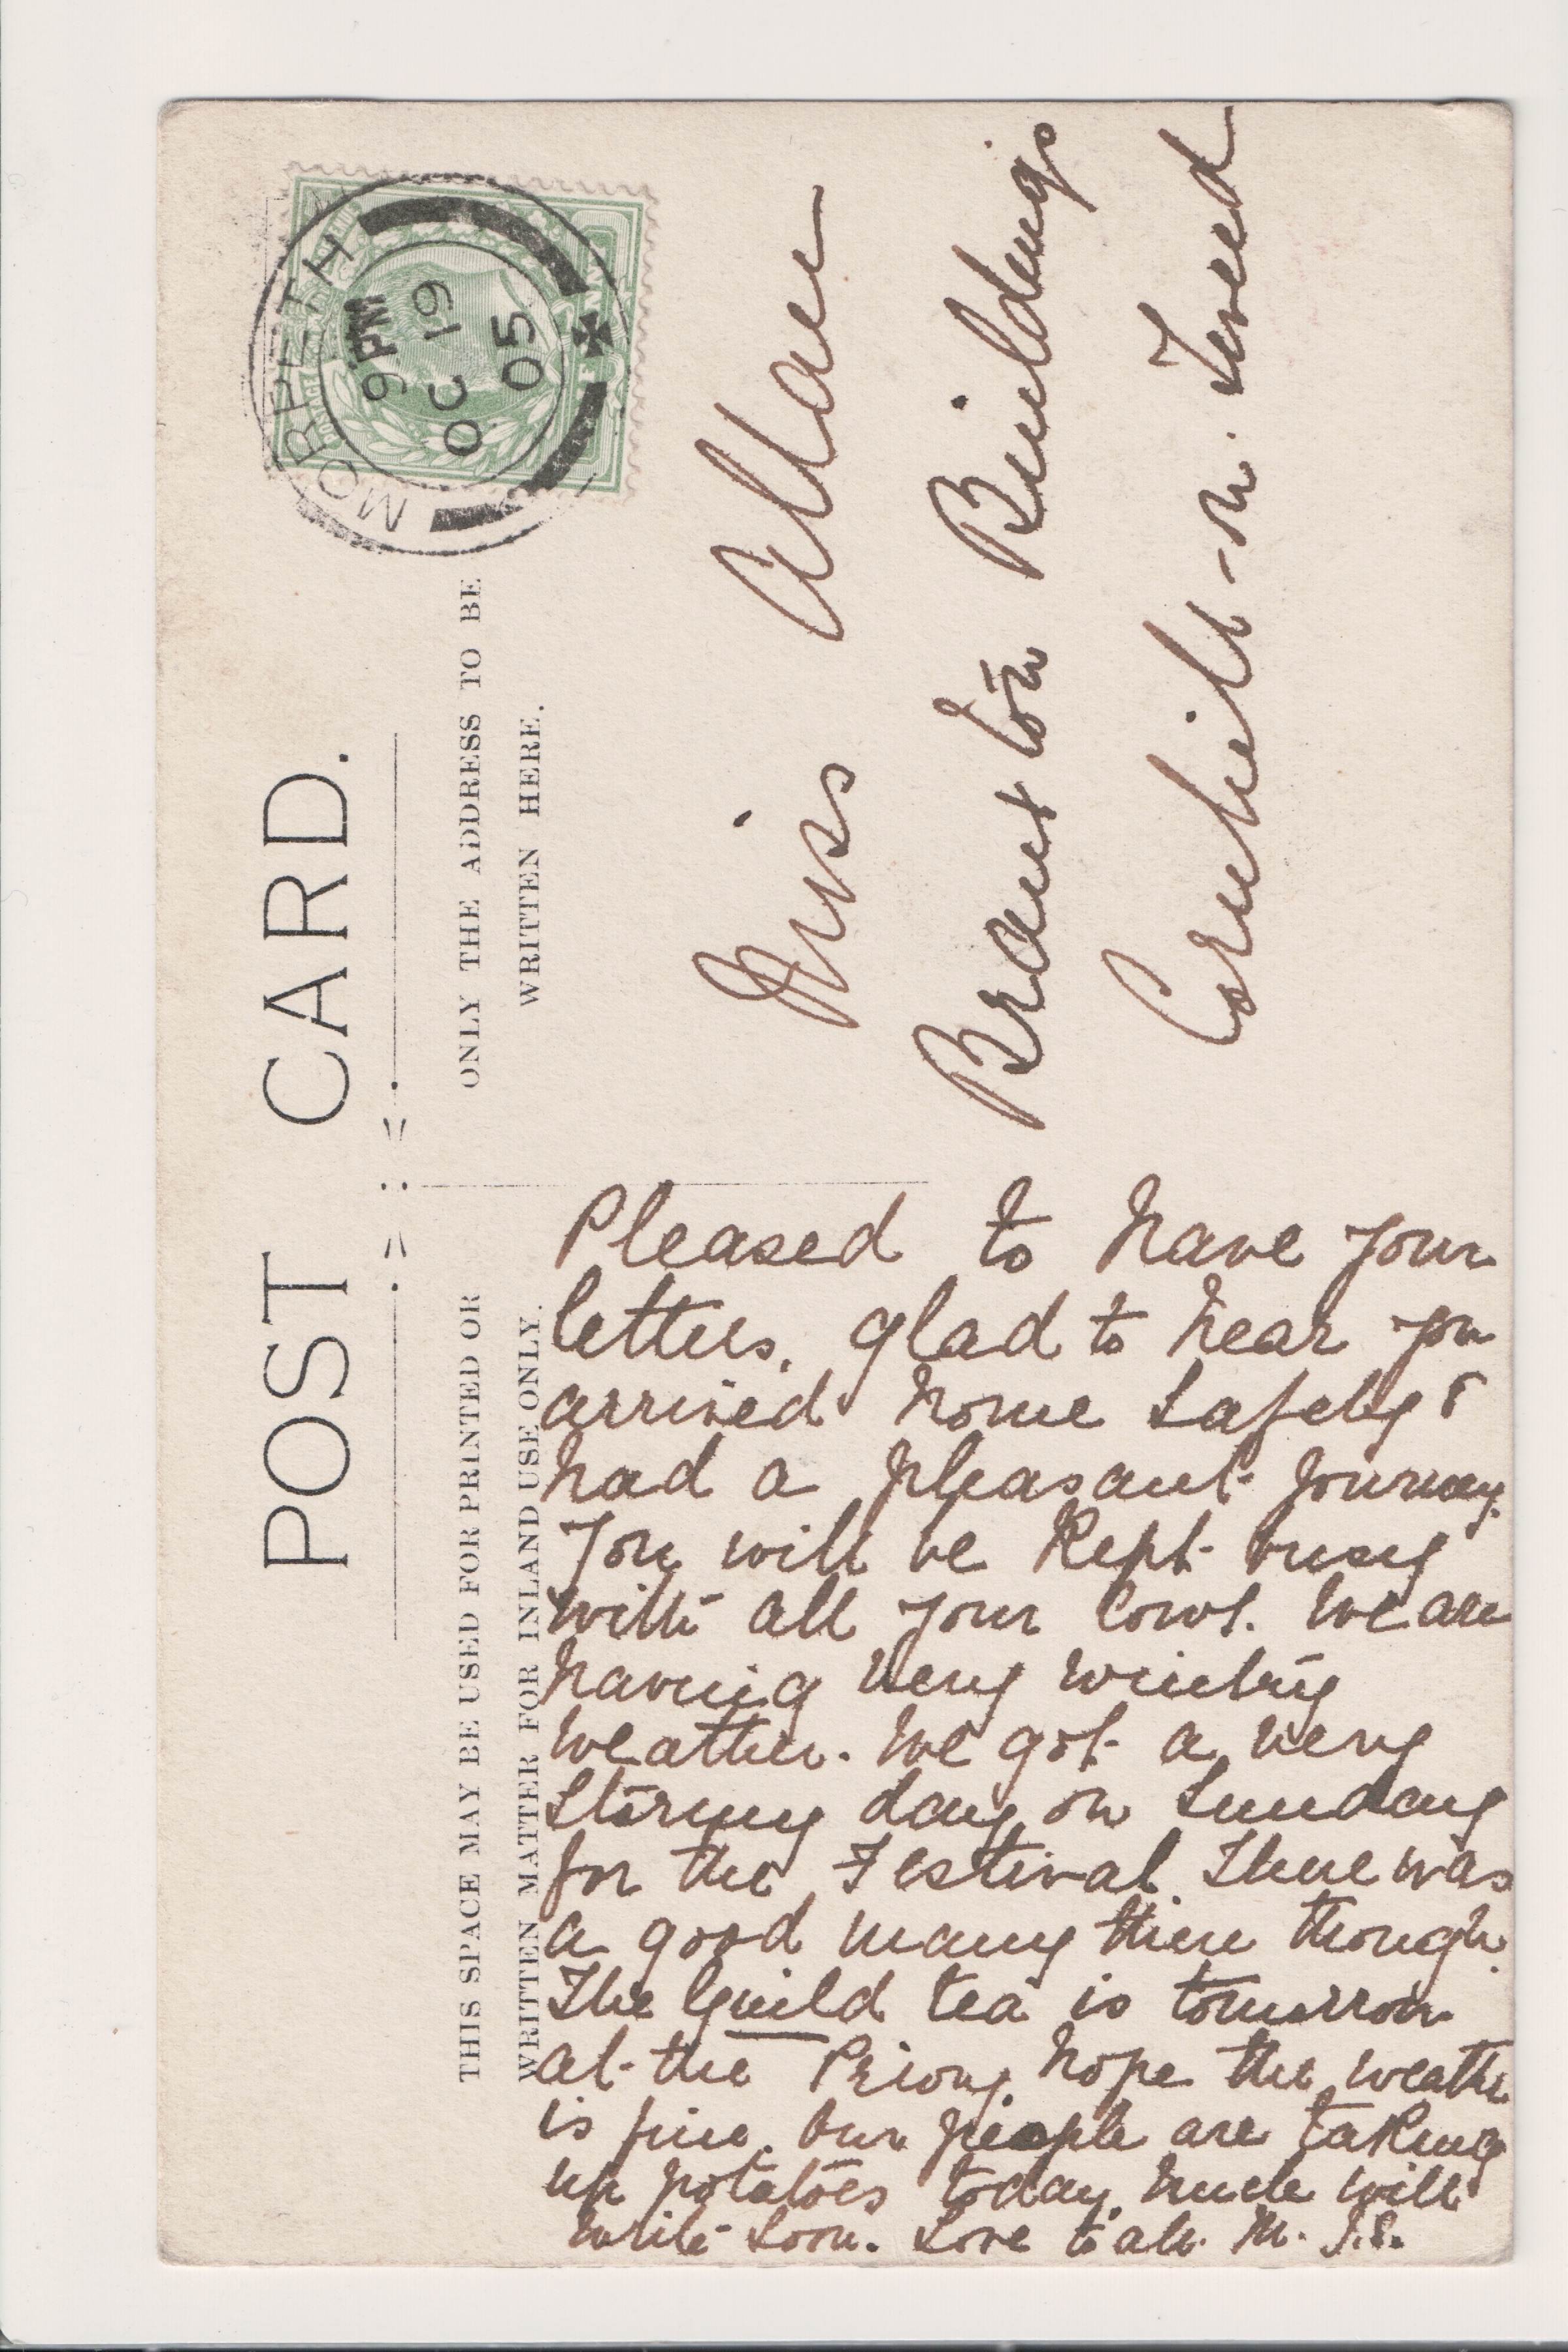 POST CARD.
THIS SPACE MAY BE USED FOR PRINTED OR
WRITTEN MATTER FOR INLAND USE ONLY.
ONLY THE ADDRESS TO BE
WRITTEN HERE.
MORPETH
9 PM
OC 19
05
Miss Allan
Branxton Buildings
Cornhill-on. Tweed
Pleased to have your
letters. glad to hear you
arrived home safely &
had a pleasant journey.
You will be kept busy
with all your cows. We are
having very wintry
weather. We got a very
stormy day on Sunday
for the Festival. There was
a good many there though.
The Guild tea is tomorrow
at the Priory. hope the weather
is fine. Our people are taking
up potatoes today. Uncle will
write soon. Love to all. M. J. S.